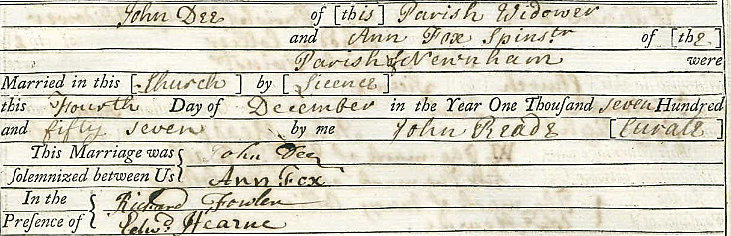 John Dee of [this] Parish Widower
and Ann Fox Spinstr of [the]
Parish of Newnham were
Married in this [Church] by [Licence]
this Fourth Day of December in the Year One Thousand seven Hundred
and fifty seven by me John Reade [Curate]
This Marriage was Solemnized between Us { John Dee
Ann Fox
In the Presence of { Richard Fowler
Edwd Hearne